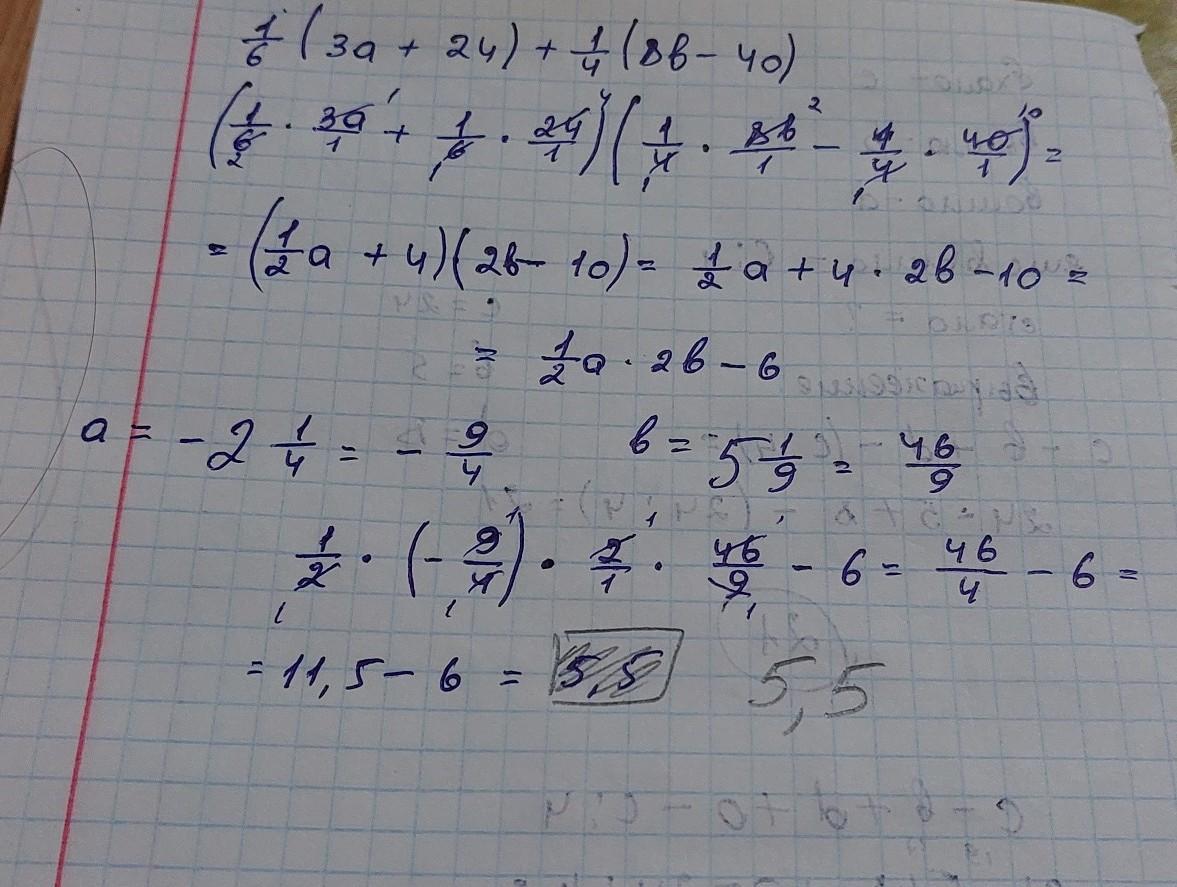 1/6 (3a + 24) + 1/4 (8b - 40)
(1/6 2 · 3a/1 1 + 1/6 1 · 24/1 4) (1/4 1 · 8b/1 2 - 1/4 1 · 40/1 10) =
= (1/2 a + 4) (2b - 10) = 1/2 a + 4 · 2b - 10 =
= 1/2 a · 2b - 6
a = - 2 1/4 = - 9/4 b = 5 1/9 = 46/9
1/2 1 · (- 9/4 1 1) · 2/1 1 · 46/9 1 - 6 = 46/4 - 6 =
= 11,5 - 6 = 5,5 5,5